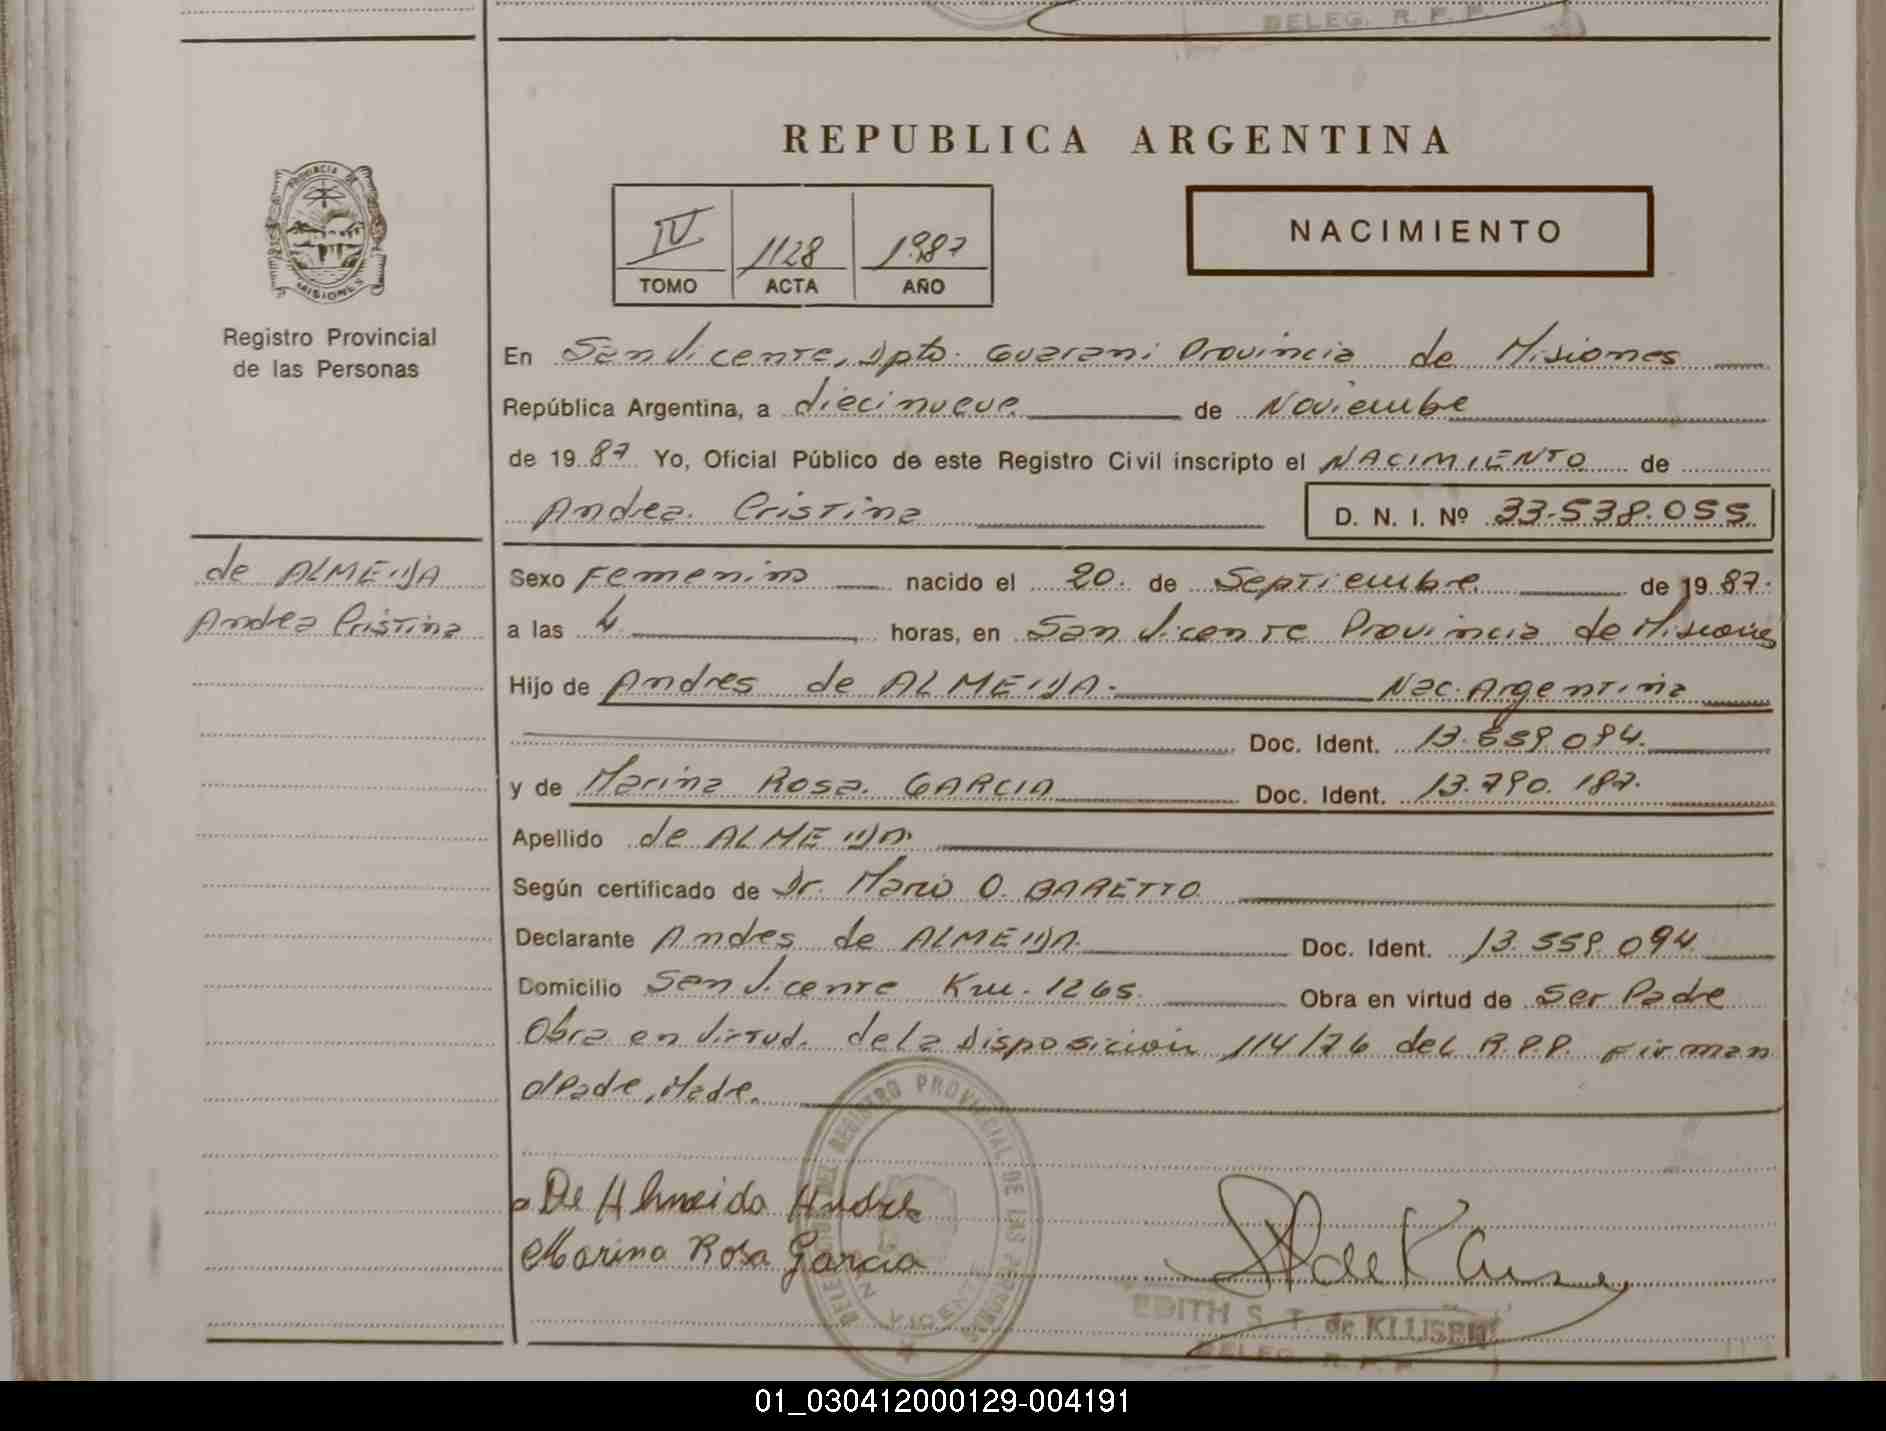 DELEG. R. P. P.
REPUBLICA ARGENTINA
PROVINCIA DE
MISIONES
IV 1128 1987
TOMO ACTA AÑO
NACIMIENTO
Registro Provincial
de las Personas
En San Vicente, Dpto. Guarani Provincia de Misiones
República Argentina, a diecinueve de Noviembe
de 1987 Yo, Oficial Público de este Registro Civil inscripto el NACIMIENTO de
Andrea Cristina D. N. I. Nº 33.538.055
de ALMEIDA
Andrea Cristina
Sexo Femenino nacido el 20. de Septiembre de 1987.
a las 4 horas, en San Vicente Provincia de Misiones
Hijo de Andres de ALMEIDA. Nac. Argentina
Doc. Ident. 13.559.094.
y de Marina Rosa. GARCIA Doc. Ident. 13.790.187.
Apellido de ALMEIDA.
Según certificado de Dr. Mario O. BARETTO.
Declarante Andres de ALMEIDA. Doc. Ident. 13.559.094
Domicilio San Vicente Km. 1265. Obra en virtud de Ser Padre
Obra en Virtud. de la Disposicion 114/76 del R.P.P. Firman
Padre, Madre.
De Almeida Andres
Marina Rosa Garcia
DELEGACION DEL REGISTRO PROVINCIAL DE LAS PERSONAS
SAN VICENTE
EDITH S. T. de KLUSENER
DELEG. R. P. P.
01_030412000129-004191